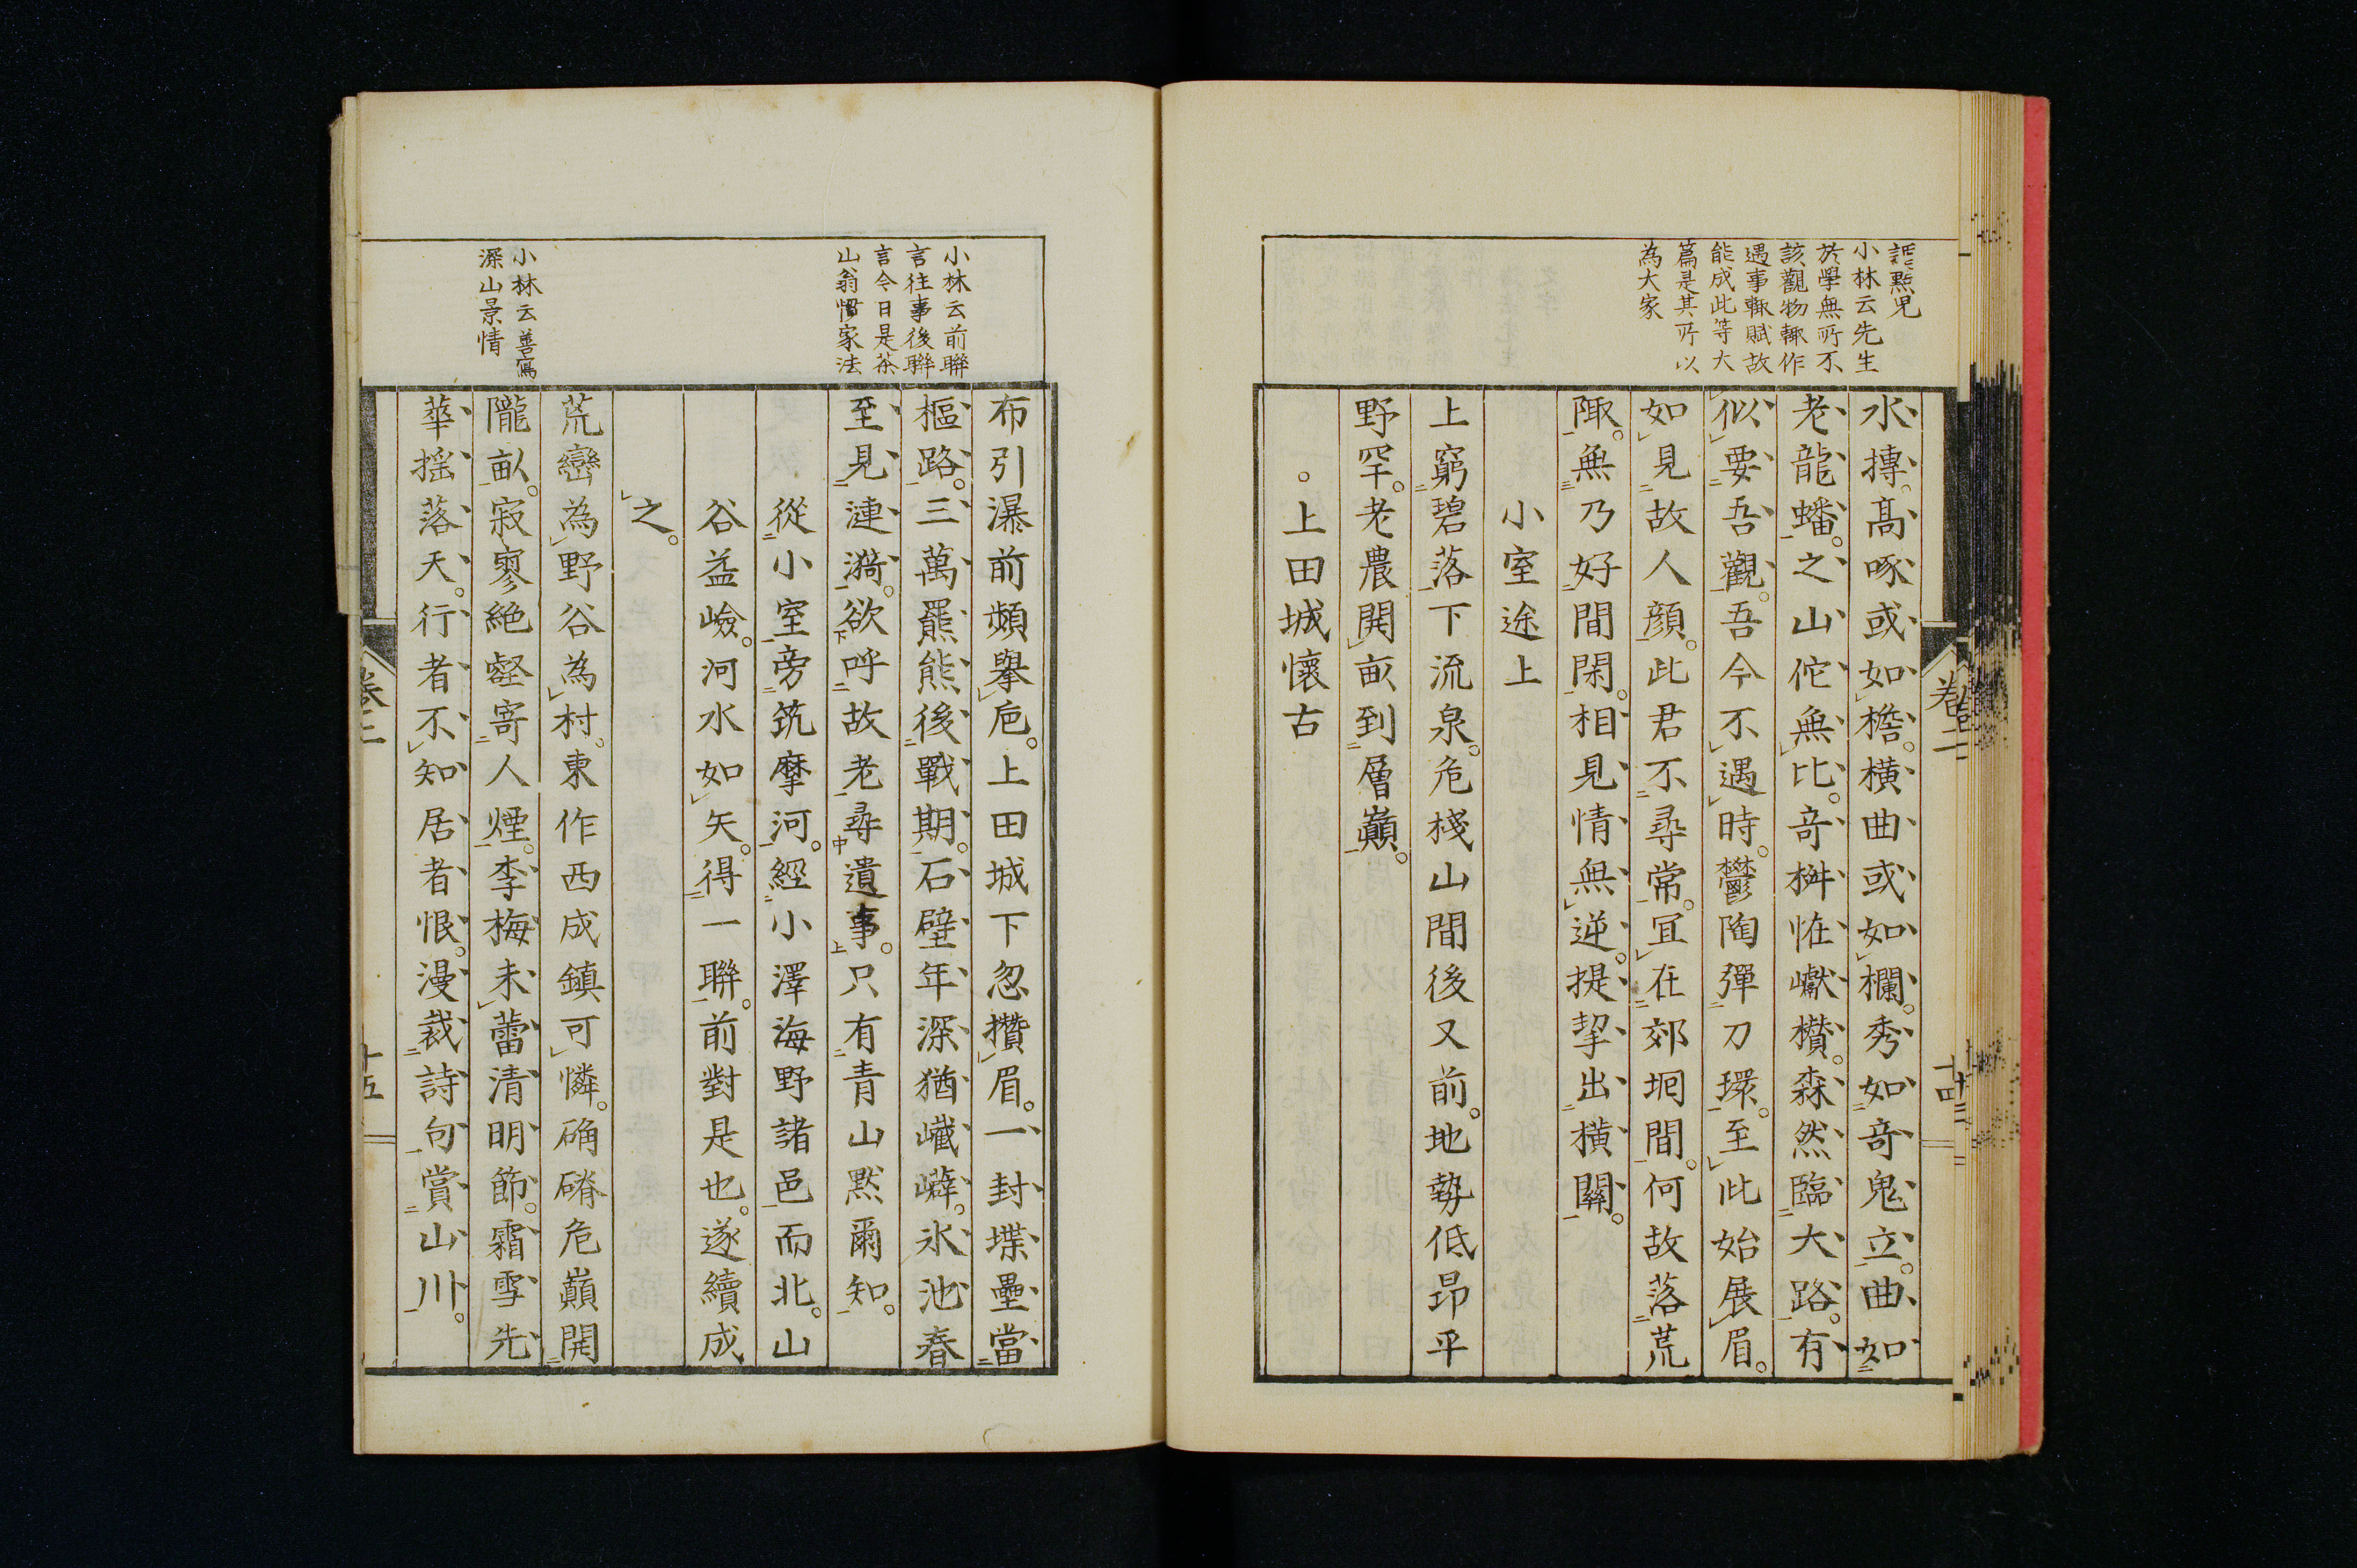 謡點鬼
小林云先生
於學無所不
該觀物輙作
遇事輙賦故
能成此等大
篇是其所以
為大家
水摶髙啄或如檐横曲或如欄秀如奇鬼立曲如
老龍蟠之山佗無比奇桝恠巘欑森然臨大路有
似要吾觀吾今不遇時鬱陶彈刀環至此始展眉
如見故人顔此君不尋常冝在郊坰間何故落荒
陬無乃好間閑相見情無逆提挈出横關
小室途上
上窮碧落下流泉危棧山間後又前地勢低昂平
野罕老農開畝到層巔
上田城懷古
卷二
十四
小林云前聯
言往事後聯
言今日是茶
山翁慣家法
小林云善寫
深山景情
布引瀑前頻擧巵上田城下忽攢眉一封堞壘當
樞路三萬羆熊後戰期石壁年深猶巇嶭氷池春
至見漣漪欲呼故老尋遺事只有青山黙爾知
從小室旁筑摩河經小澤海野諸邑而北山
谷益嶮河水如矢得一聯前對是也遂續成
之
荒巒為野谷為村東作西成鎮可憐确磽危巓開
隴畝寂寥絶壑寄人煙李梅未蕾清明節霜雪先
華揺落天行者不知居者恨漫裁詩句賞山川
卷二
十五